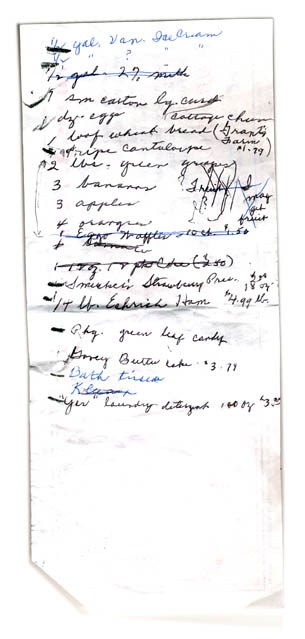 1/2 gal. Van. Ice Cream
1/2 " " ? "
1/2 gal. 2% milk
1 sm carton lg. curd
cottage cheese
1 dz. eggs
1 loaf wheat bread (Grant's Farm $1.79
1 ripe cantaloupe
2 lbs. green grapes
3 bananas
3 apples
4 oranges
I may get fruit
1 Eggo Waffles 10 ct. $1.50
1 12 pk Coke ($2.50)
Smucker's Strawberry Pres. 18 oz
1 lb. Eckrich Ham $4.99 lb.
Pkg. green leaf candy
1 Gooey Butter cake $3.79
Bath tissue
Kleenex
"Era" laundry detergent 100 oz